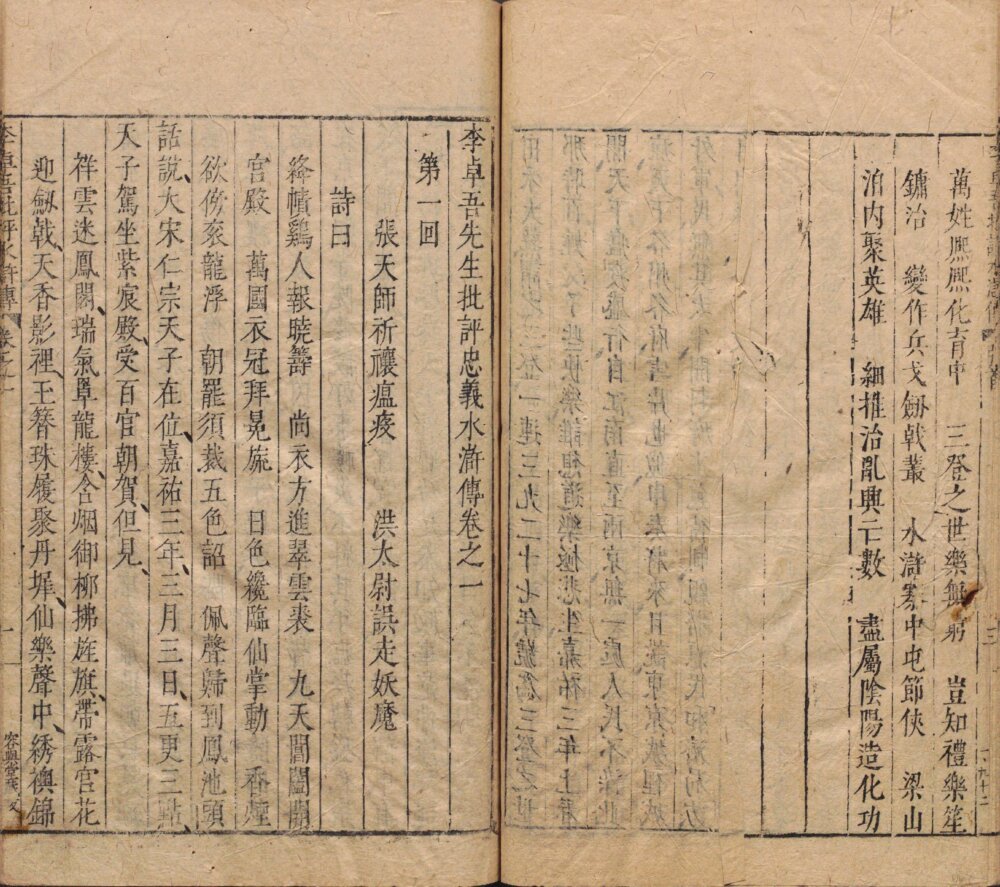 萬姓熈熈化育中　三登之世樂無窮　豈知禮樂笙
鏞治　變作兵戈劔戟叢　水滸寨中屯節俠　梁山
泊内聚英雄　細推治亂興亡數　盡屬陰陽造化功
李卓吾先生批評忠義水滸傳卷之一
第一回
張天師祈禳瘟疫　洪太尉誤走妖魔
詩曰
絳幘鷄人報曉籌　尚衣方進翠雲裘　九天閶闔開
宮殿　萬國衣冠拜冕旒　日色纔臨仙掌動　香煙
欲傍衮龍浮　朝罷須裁五色詔　佩聲歸到鳳池頭
話說、大宋仁宗天子在位、嘉祐三年、三月三日、五更三點、
天子駕坐紫宸殿、受百官朝賀、但見、
祥雲迷鳳閣、瑞氣罩龍樓、含烟御柳拂旌旗、帶露宮花
迎劔戟、天香影裡、玉簪珠履聚丹墀、仙樂聲中、綉襖錦
李卓吾批評水滸傳　卷之一　一　容與堂藏